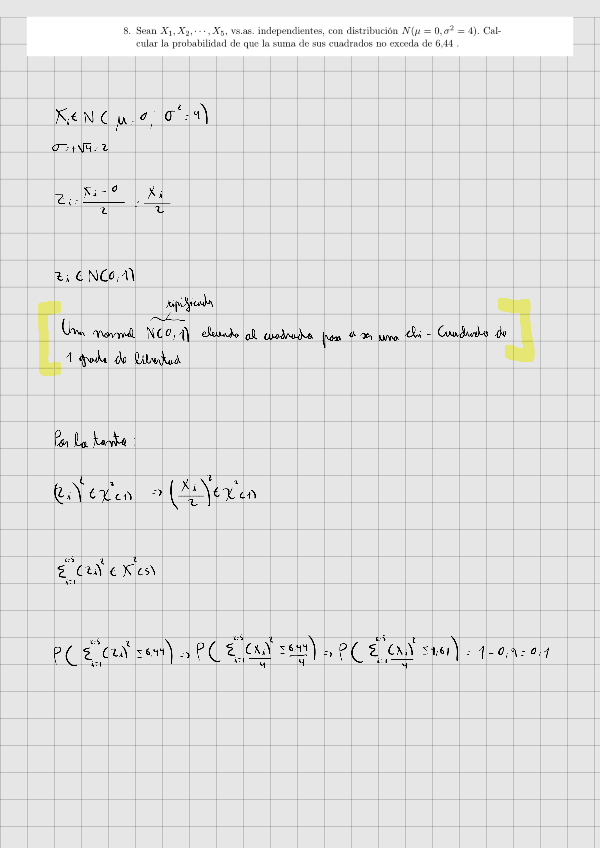 8. Sean X₁, X₂, ⋯, X₅, vs.as. independientes, con distribución N(μ = 0, σ² = 4). Cal-
cular la probabilidad de que la suma de sus cuadrados no exceda de 6,44 .
Xᵢ ∈ N( μ = 0; σ² = 4)
σ = +√4 = 2
Zᵢ = (Xᵢ - 0)/2 = Xᵢ/2
Zᵢ ∈ N(0,1)
tipificada
Una normal N(0,1) elevada al cuadrado pasa a ser una chi - Cuadrado de
1 grado de libertad
Por lo tanto :
(Zᵢ)² ∈ χ²(1) => (Xᵢ/2)² ∈ χ²(1)
Σᵢ₌₁ⁱ⁼⁵ (Zᵢ)² ∈ χ²(5)
P( Σᵢ₌₁ⁱ⁼⁵ (Zᵢ)² ≤ 6,44) => P( Σᵢ₌₁ⁱ⁼⁵ (Xᵢ)²/4 ≤ 6,44/4) => P( Σᵢ₌₁ⁱ⁼⁵ (Xᵢ)²/4 ≤ 1,61) = 1 - 0,9 = 0,1